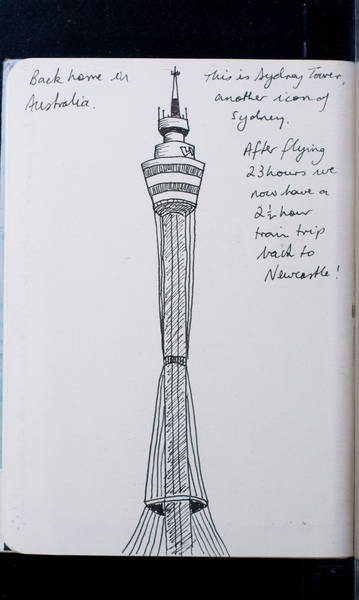 Back home in
Australia.
This is Sydney Tower,
another icon of
Sydney.
After flying
23 hours we
now have a
2½ hour
train trip
back to
Newcastle!